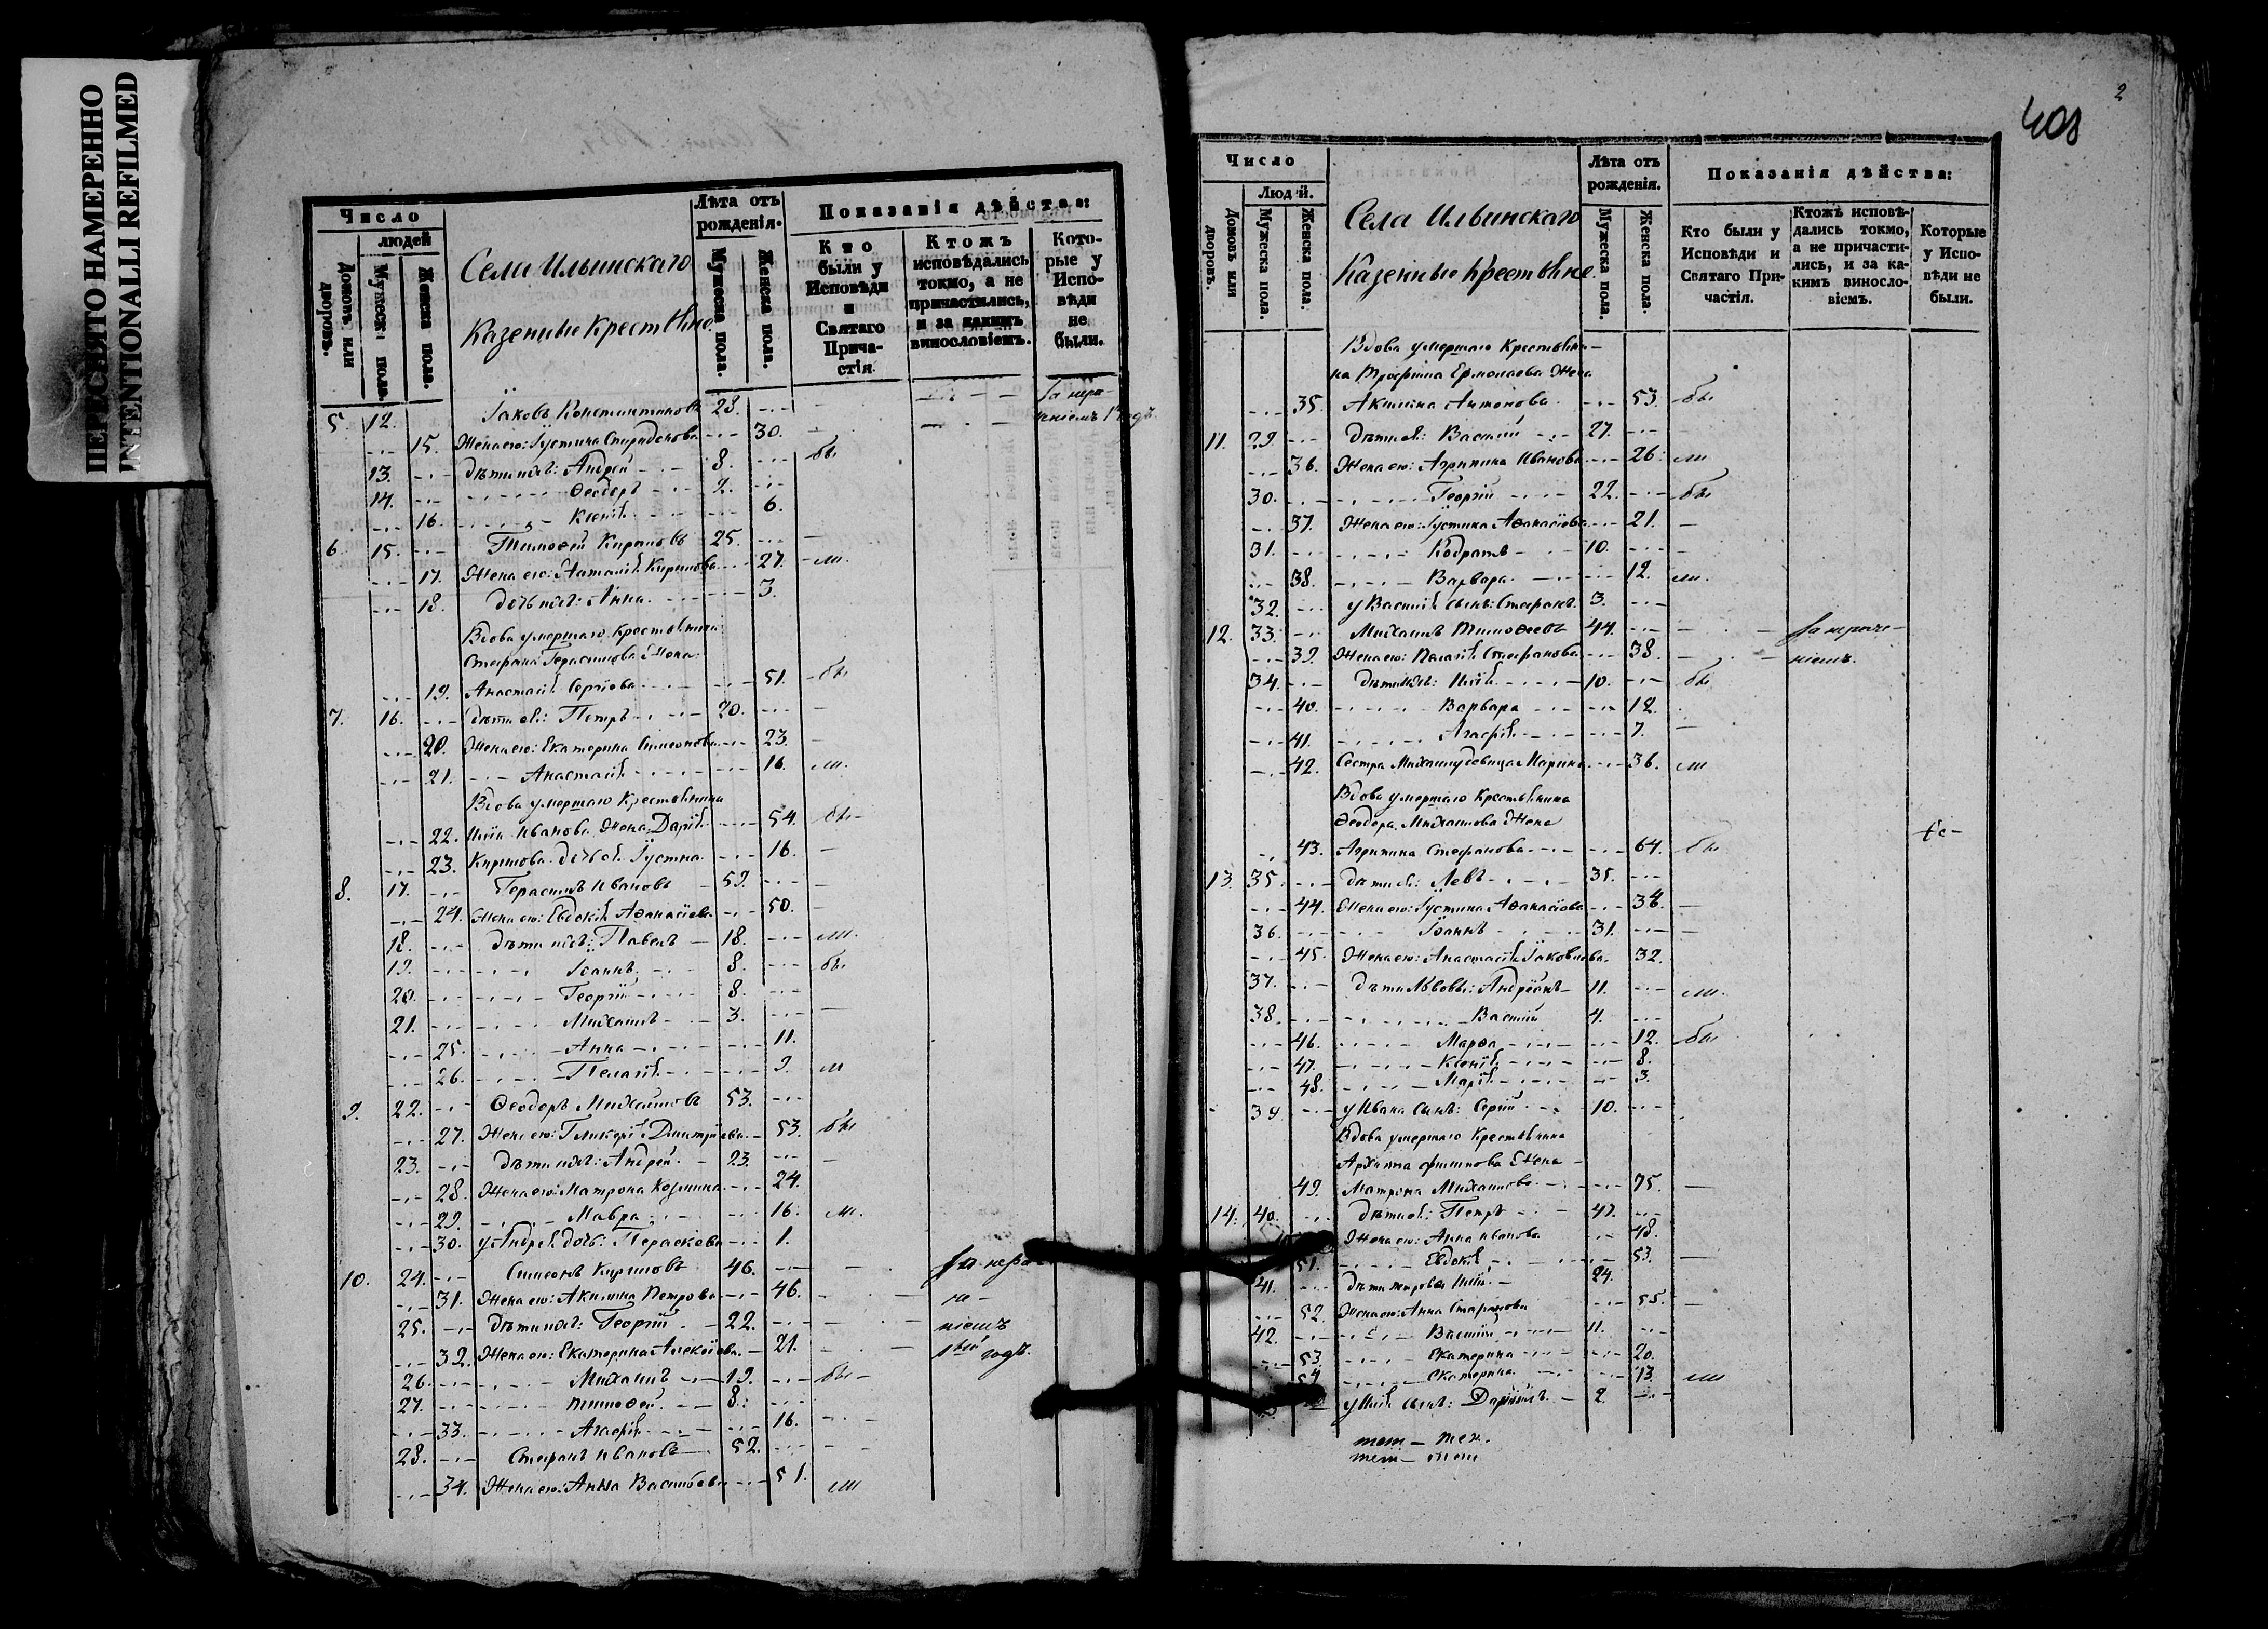 ПЕРЕСНЯТО НАМЕРЕННО
INTENTIONALLI REFILMED
Число
людей
Домовъ или дворовъ.
Мужеска пола.
Женска пола.
Села Ильинскаго
Казенные Крестьяне
Лѣта отъ рожденія.
Мужеска пола.
Женска пола.
Показанія дѣйства:
Кто были у Исповѣди и Святаго Прича-стія.
Ктожъ исповѣдались токмо, а не причастились, и за какимъ винословіемъ.
Кото-рые у Испо-вѣди не были.
5. 12. Іаковъ Константиновъ 28.
15. Жена его: Іустина Спиридонова 30.
13. Дѣти ихъ: Андрей 8. бы
14. Ѳеодоръ 2.
16. Ксенія 6.
6. 15. Тимоѳей Кириловъ 25.
17. Жена его: Наталія Кирилова 27. ли.
18. Дочь ихъ: Анна 3.
Вдова умершаго Крестьянина
Стефана Герасимова Жена
19. Анастасія Сергіева 51. бы
7. 16. Дѣти ея: Петръ 20.
20. Жена его: Екатерина Симеонова 23.
21. Анастасія 16. ли.
Вдова умершаго Крестьянина
22. Иліи Иванова Жена Дарія 54. бы
23. Кирилова дочь ея Іустина 16.
8. 17. Герасимъ Ивановъ 59.
24. Жена его: Евдокія Аѳанасіева 50.
18. Дѣти ихъ: Павелъ 18. ли.
19. Іоаннъ 8. бы
20. Георгій 8.
21. Михаилъ 3.
25. Анна 11.
26. Пелагія 9. ли
9. 22. Ѳеодоръ Михайловъ 53.
27. Жена его: Гликерія Димитріева 53. бы
23. Дѣти ихъ: Андрей 23.
28. Жена его: Матрона Козмина 24.
29. Мавра 16. ли.
30. У Андрея дочь: Параскева 1.
10. 24. Симеонъ Кириловъ 46.
31. Жена его: Акилина Петрова 46.
25. Дѣти ихъ: Георгій 22. ніемъ
32. Жена его: Екатерина Алексіева 21. 1вый годъ.
26. Михаилъ 19. бы
27. Тимоѳей 8.
33. Агафія 16.
28. Стефанъ Ивановъ 52.
34. Жена его: Анна Васильева 51. ли
2
408
Число
Людей.
Домовъ или дворовъ.
Мужеска пола.
Женска пола.
Села Ильинскаго
Казенные Крестьяне
Лѣта отъ рожденія.
Мужеска пола.
Женска пола.
Показанія дѣйства:
Кто были у Исповѣди и Святаго При-частія.
Ктожъ исповѣ-дались токмо, а не причасти-лись, и за ка-кимъ виносло-віемъ.
Которые у Испо-вѣди не были.
Вдова умершаго Крестьяни-
на Трофима Ермолаева Жена
35. Акилина Антонова 53. бы
11. 29. Дѣти ея: Василій 27.
36. Жена его: Агрипина Иванова 26. ли
30. Георгій 22. бы
37. Жена его: Іустина Аѳанасіева 21.
31. Кодратъ 10.
38. Варвара 12. ли.
32. У Василія сынъ: Стефанъ 3.
12. 33. Михаилъ Тимоѳеевъ 44.
39. Жена его: Пелагія Стефанова 38. ніемъ.
34. Дѣти ихъ: Илія 10. бы
40. Варвара 12.
41. Агафія 7.
42. Сестра Михаилу девица Марина 36. ли
Вдова умершаго Крестьянина
Ѳеодора Михайлова Жена
43. Агрипина Стефанова 64. бы
13. 35. Дѣти ея: Левъ 35.
44. Жена его: Іустина Аѳанасіева 36.
36. Іоаннъ 31.
45. Жена его: Анастасія Іаковлева 32.
37. Дѣти Львовы: Андріанъ 11. ли.
38. Василій 4.
46. Марѳа 12. бы
47. Ксенія 8.
48. Марія 3.
39. У Ивана сынъ: Сергій 10.
Вдова умершаго Крестьянина
Архипа Филипова Жена
49. Матрона Михайлова 75.
14. 40. Дѣти ея: Петръ 47.
Жена его: Анна Иванова 48.
51. Евдокія 53.
41. Дѣти Петровы Илія 24.
52. Жена его: Анна 55.
42. Василій 11.
53. Екатерина 20.
54. Екатерина 13. ли
У Иліи сынъ: Даніилъ 2.